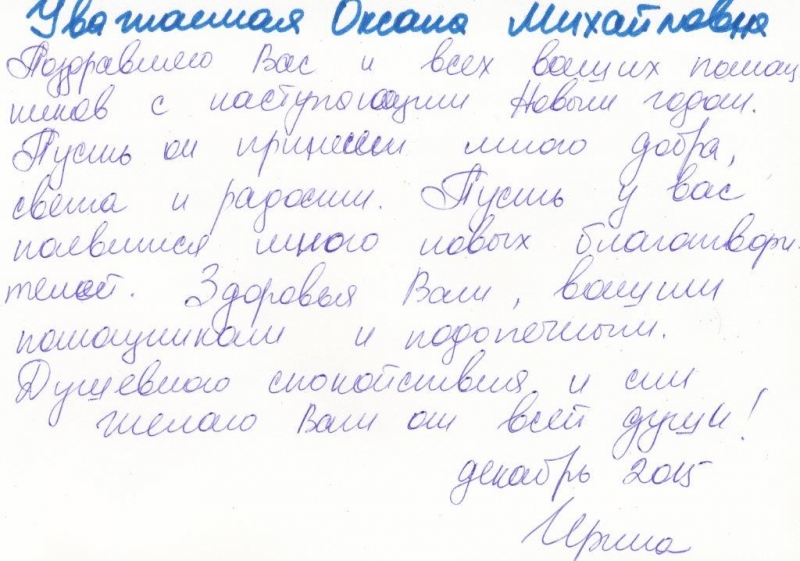 Уважаемая Оксана Михайловна
Поздравляю Вас и всех ваших помощ
ников с наступающим Новым годом.
Пусть он принесет много добра,
света и радости. Пусть у вас
появится много новых благотвори-
телей. Здоровья Вам, вашим
помощникам и подопечным.
Душевного спокойствия и сил
желаю Вам от всей души!
декабрь 2015
Ирина